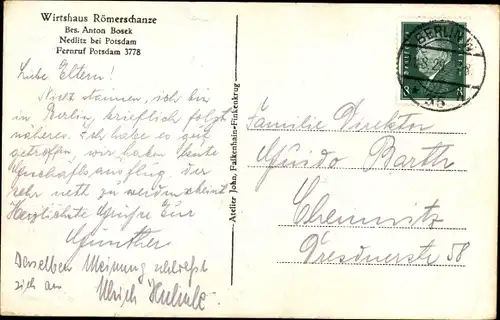 Wirtshaus Römerschanze
Bes. Anton Bosek
Nedlitz bei Potsdam
Fernruf Potsdam 3778
Liebe Eltern!
Nicht staunen, ich bin
in Berlin, brieflich folgt
näheres. Ich habe es gut
getroffen, wir haben heute
Geschäftsausflug, der
sehr nett zu werden scheint.
Herzlichste Grüße Eur
Günther
Derselben Meinung schließt
sich an Ulrich
Atelier John, Falkenhain-Finkenkrug
BERLIN
8
8
Familie Direktor
Guido Barth
Chemnitz
Dresdnerstr 58